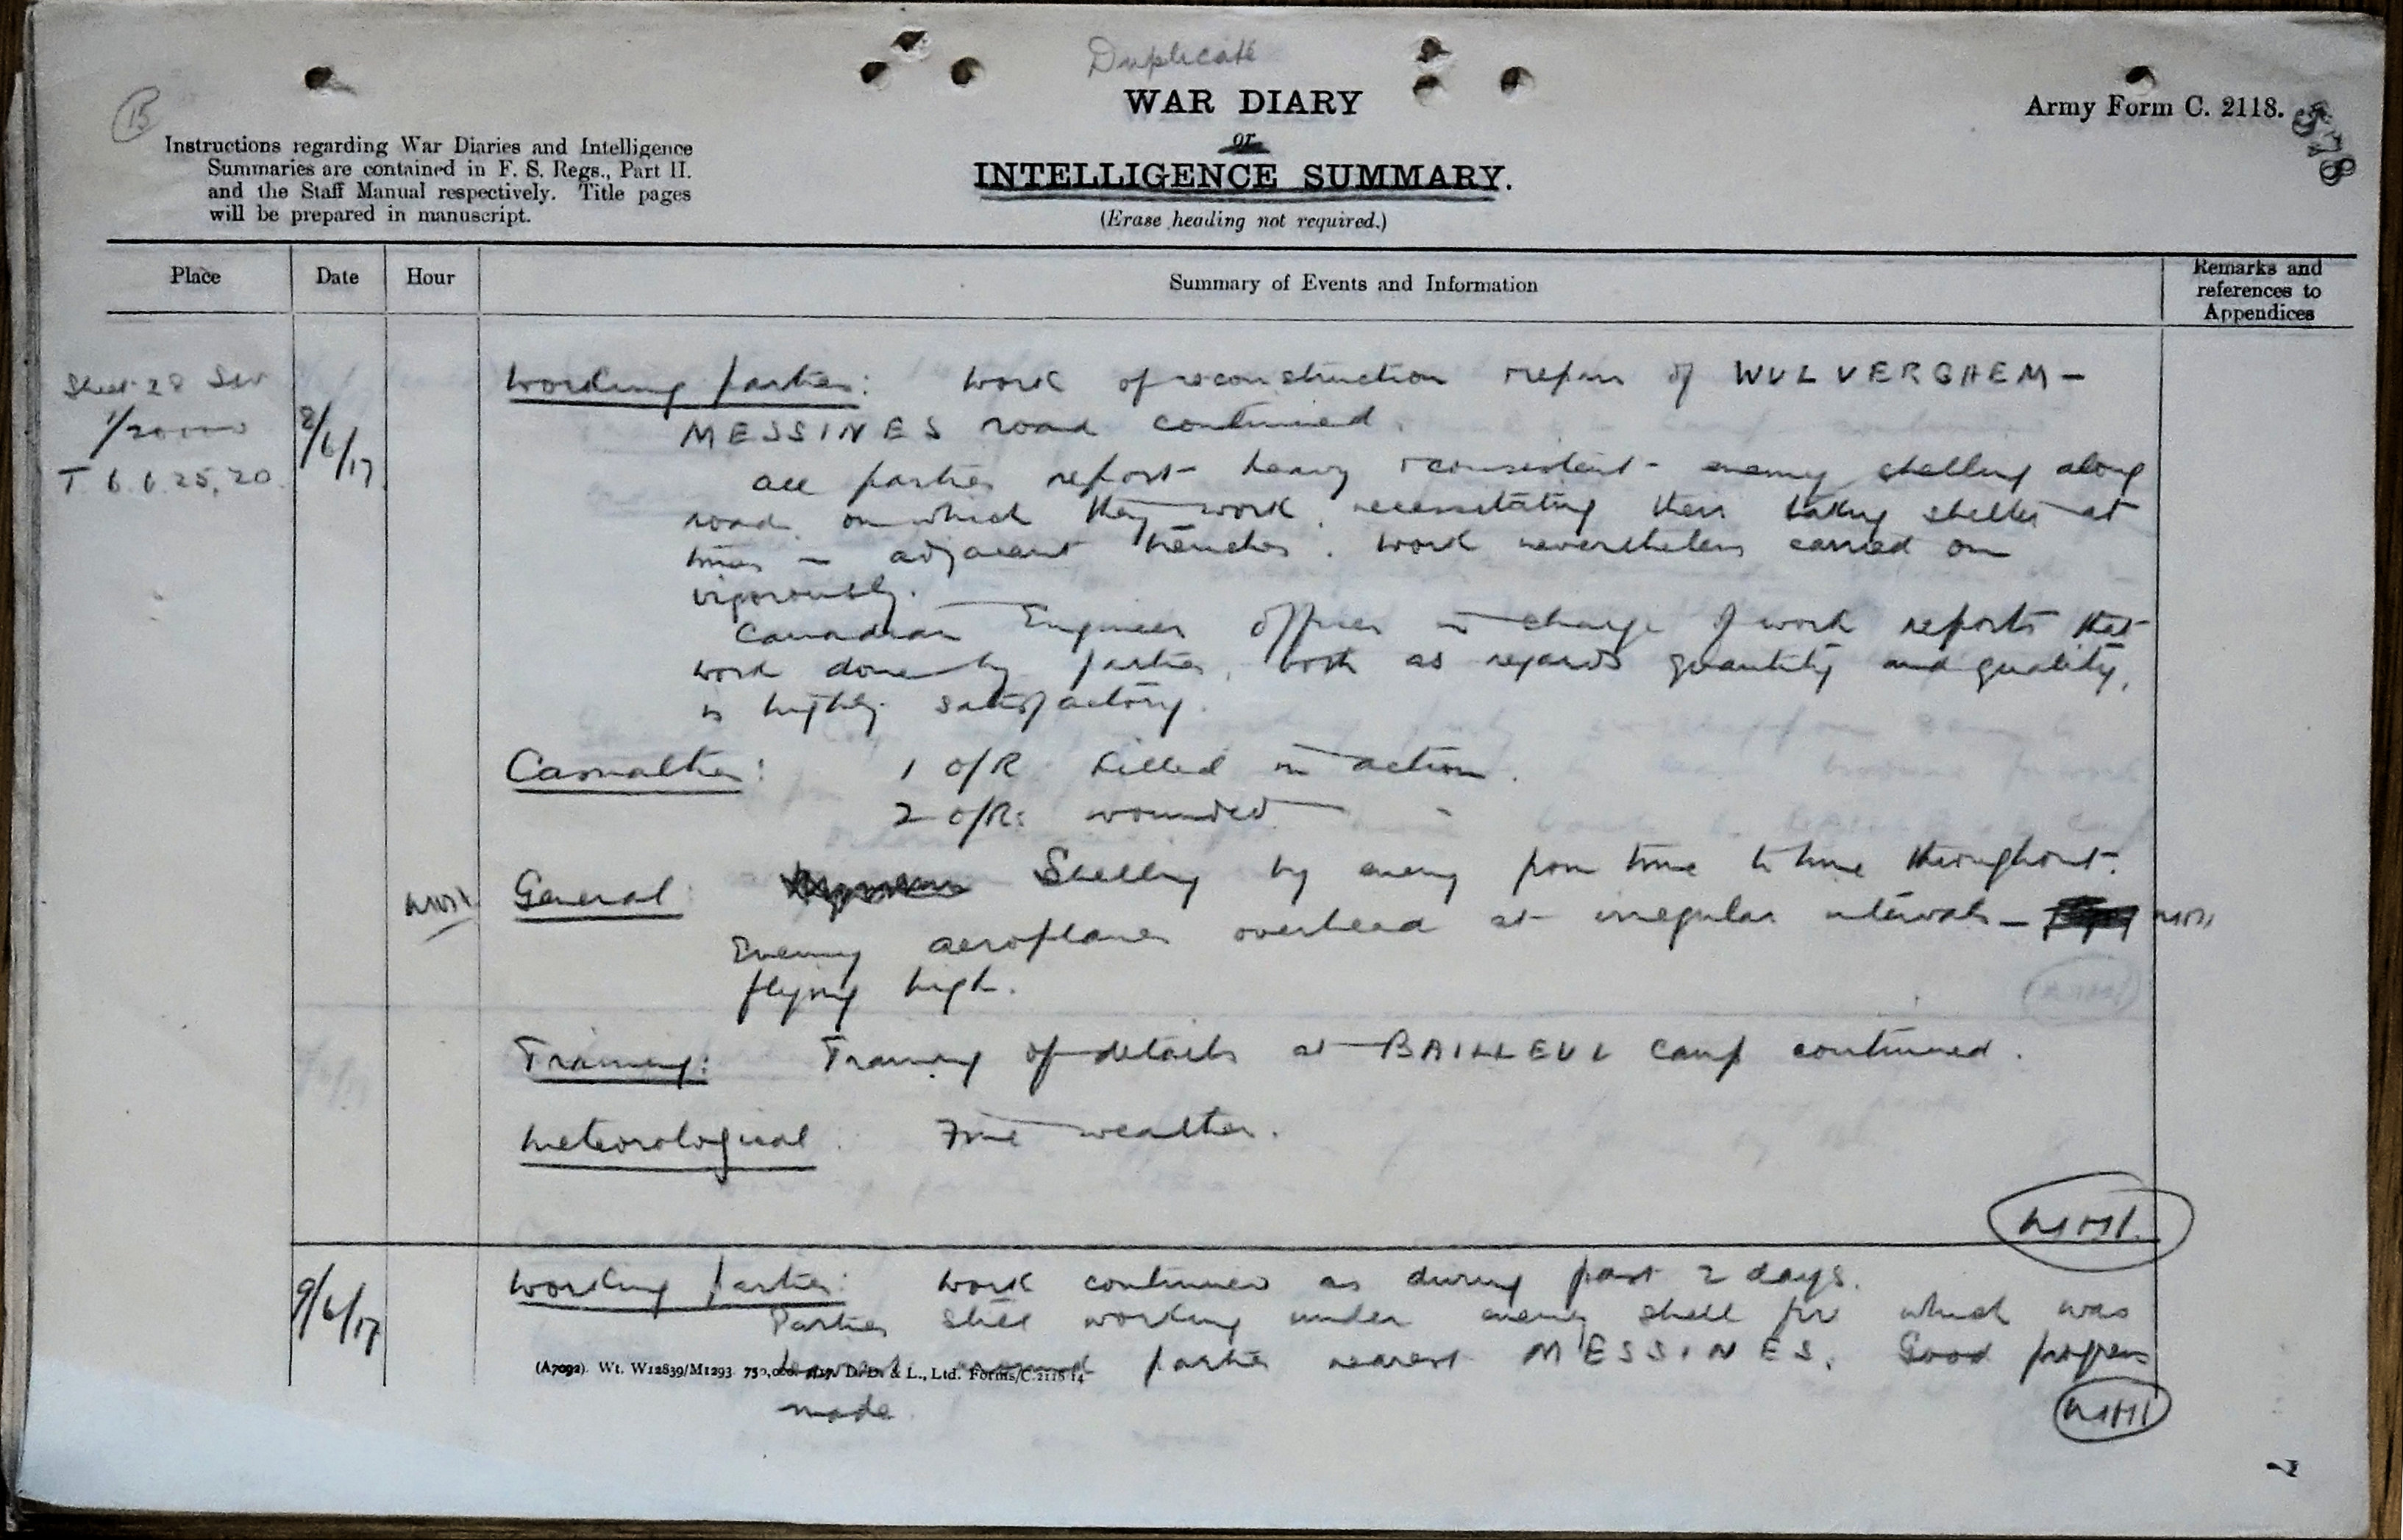 Duplicate
WAR DIARY
or
INTELLIGENCE SUMMARY.
(Erase heading not required.)
Army Form C. 2118.
578
Instructions regarding War Diaries and Intelligence
Summaries are contained in F. S. Regs., Part II.
and the Staff Manual respectively. Title pages
will be prepared in manuscript.
Place
Date
Hour
Summary of Events and Information
Remarks and
references to
Appendices
Sheet 28 SW
1/20000
T 6.c.25,20.
8/6/17
Working parties: Work of reconstruction & repair of WULVERGHEM -
MESSINES road continued.
All parties report heavy & consistent enemy shelling along
road on which they work, necessitating their taking shelter at
times in adjacent trenches. Work nevertheless carried on
vigorously.
Canadian Engineer Officer in charge of work reports that
work done by parties, both as regards quantity and quality,
is highly satisfactory.
Casualties: 1 O/R killed in action.
2 O/Rs wounded "
General: Shelling by enemy from time to time throughout.
Enemy aeroplanes overhead at irregular intervals -
flying high.
Training: Training of details at BAILLEUL camp continued.
Meteorological: Fine weather.
9/6/17
Working parties: Work continued as during past 2 days.
Parties still working under enemy shell fire which was
heaviest parties nearest MESSINES. Good progress
made.
(A7092). Wt. W12839/M1293. 750,000. 1/17. D. D. & L., Ltd. Forms/C.2118/14.